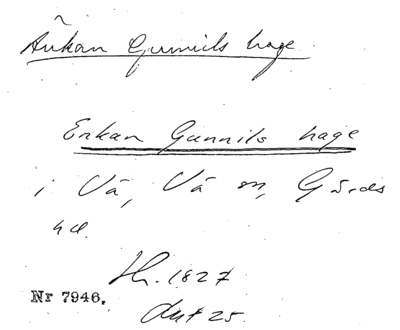 Änkan Gunnils hage
Enkan Gunnils hage
i Vä, Vä sn, Gärds
hd.
Hr. 1827
Nr 7946.
akt 25.